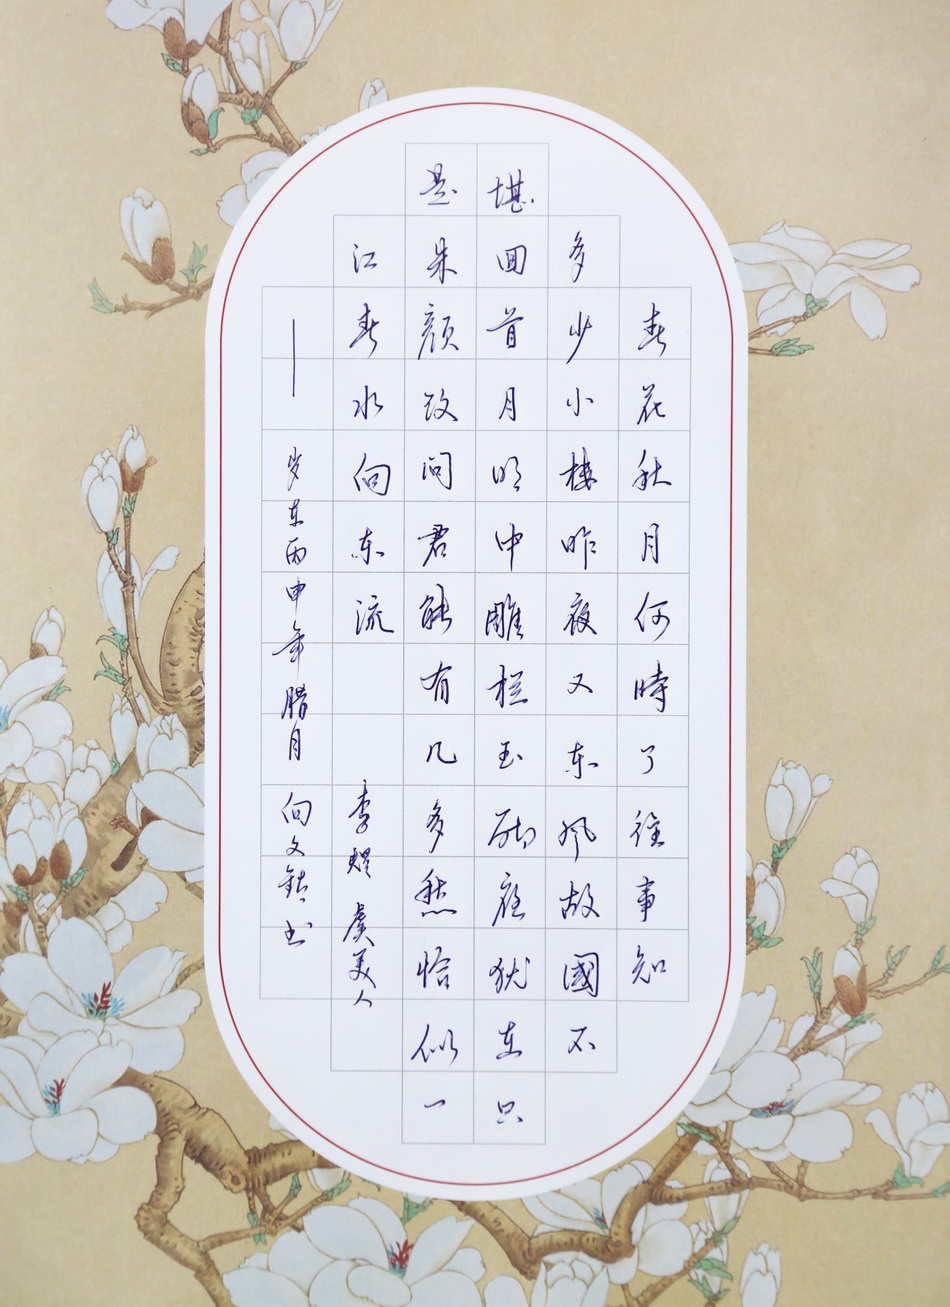 春花秋月何時了往事知
多少小楼昨夜又东风故國不
堪回首月明中雕栏玉砌应犹在只
是朱颜改问君能有几多愁恰似一
江春水向东流
李煜 虞美人
岁在丙申年腊月
向文书